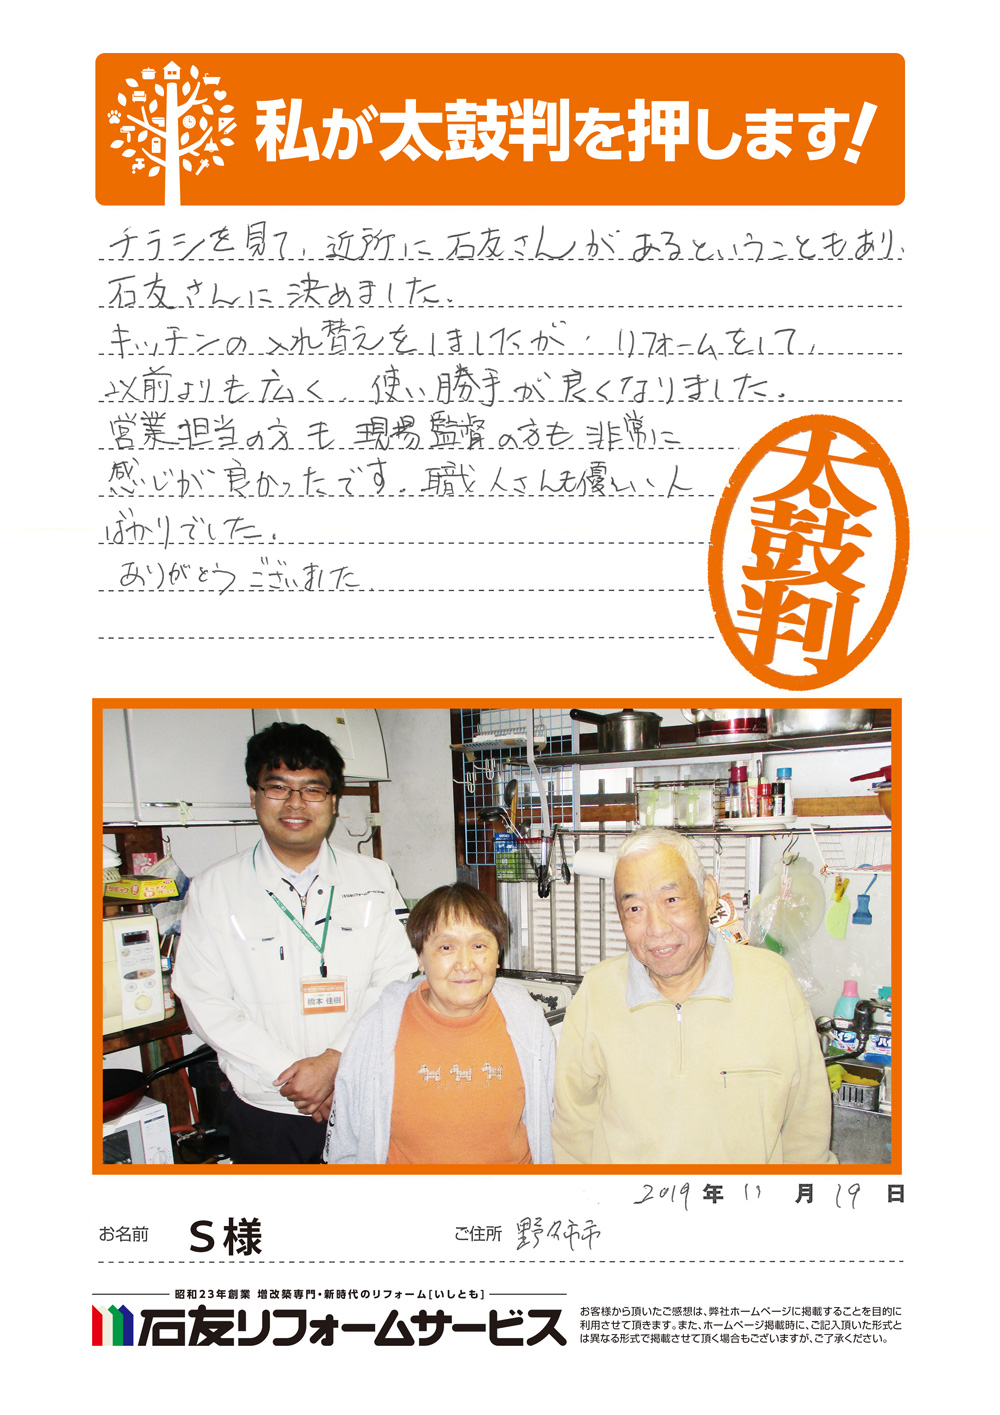 私が太鼓判を押します!
チラシを見て、近所に石友さんがあるということもあり、
石友さんに決めました。
キッチンの入れ替えをしましたが、リフォームをして、
以前よりも広く、使い勝手が良くなりました。
営業担当の方も現場監督の方も非常に
感じが良かったです。職人さんも優しい人
ばかりでした。
ありがとうございました。
太鼓判
橋本 佳樹
2019年 11月 19日
お名前 S様 ご住所 野々市市
昭和23年創業 増改築専門・新時代のリフォーム[いしとも]
石友リフォームサービス
お客様から頂いたご感想は、弊社ホームページに掲載することを目的に
利用させて頂きます。また、ホームページ掲載時に、ご記入頂いた形式と
は異なる形式で掲載させて頂く場合もございますが、ご了承ください。